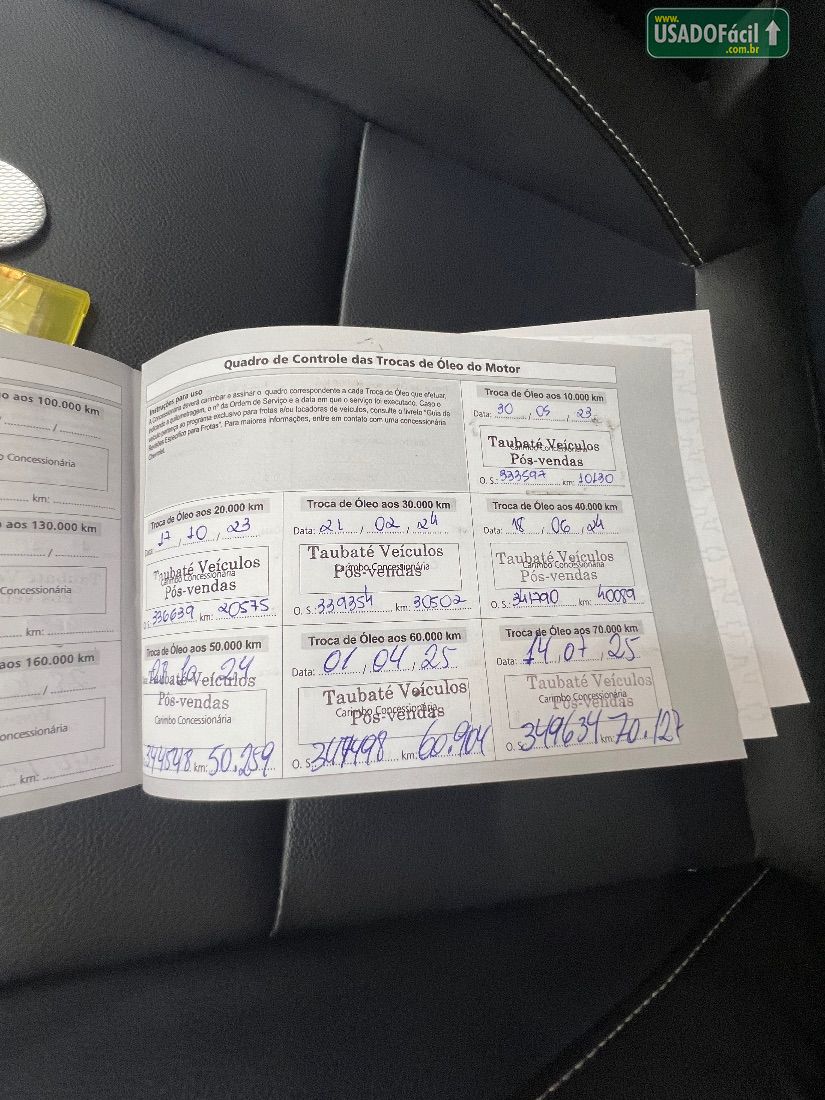 www.
USADOFácil
.com.br
Quadro de Controle das Trocas de Óleo do Motor
Instruções para uso
A Concessionária deverá carimbar e assinar o quadro correspondente a cada Troca de Óleo que efetuar,
indicando a quilometragem, o nº da Ordem de Serviço e a data em que o serviço foi executado. Caso o
veículo pertença ao programa exclusivo para frotas e/ou locadoras de veículos, consulte o livreto "Guia de
Revisões Específico para Frotas". Para maiores informações, entre em contato com uma concessionária
Chevrolet.
Troca de Óleo aos 10.000 km
Data: 30 / 05 / 23
Taubaté Veículos
Carimbo Concessionária
Pós-vendas
O. S.: 333597 km: 10130
Troca de Óleo aos 20.000 km
Data: 17 / 10 / 23
Taubaté Veículos
Carimbo Concessionária
Pós-vendas
O. S.: 336639 km: 20575
Troca de Óleo aos 30.000 km
Data: 21 / 02 / 24
Taubaté Veículos
Carimbo Concessionária
Pós-vendas
O. S.: 339354 km: 30502
Troca de Óleo aos 40.000 km
Data: 18 / 06 / 24
Taubaté Veículos
Carimbo Concessionária
Pós-vendas
O. S.: 341790 km: 40089
Troca de Óleo aos 50.000 km
24
Taubaté Veículos
Pós-vendas
Carimbo Concessionária
344548 km: 50.259
Troca de Óleo aos 60.000 km
Data: 01 / 04 / 25
Taubaté Veículos
Carimbo Concessionária
Pós-vendas
O. S.: 347498 km: 60.904
Troca de Óleo aos 70.000 km
Data: 14 / 07 / 25
Taubaté Veículos
Carimbo Concessionária
Pós-vendas
O. S.: 349634 km: 70.127
o aos 100.000 km
/ /
o Concessionária
km:
aos 130.000 km
/
Concessionária
km:
aos 160.000 km
/
oncessionária
km: